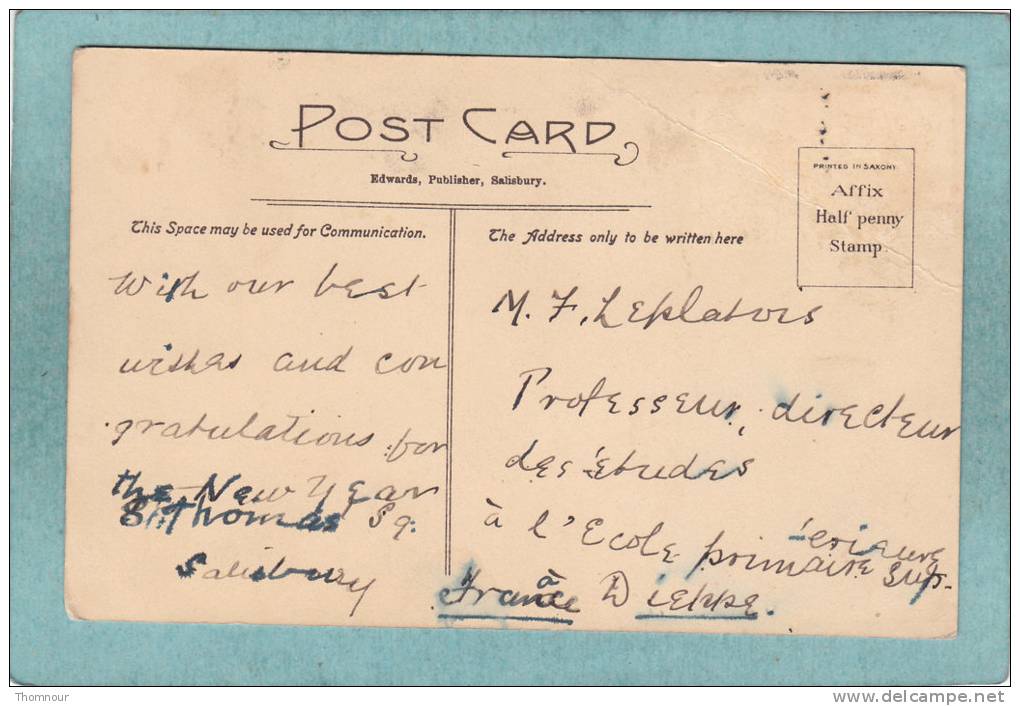 POST CARD
Edwards, Publisher, Salisbury.
PRINTED IN SAXONY
Affix
Half penny
Stamp.
This Space may be used for Communication.
With our best
wishes and con
gratulations for
the New Year
St Thomas' Sq.
Salisbury
The Address only to be written here
M. F. Leplatois
Professeur, directeur
des études
à l'Ecole primaire sup-
érieure
à Dieppe.
France
Thomnour
www.delcampe.net